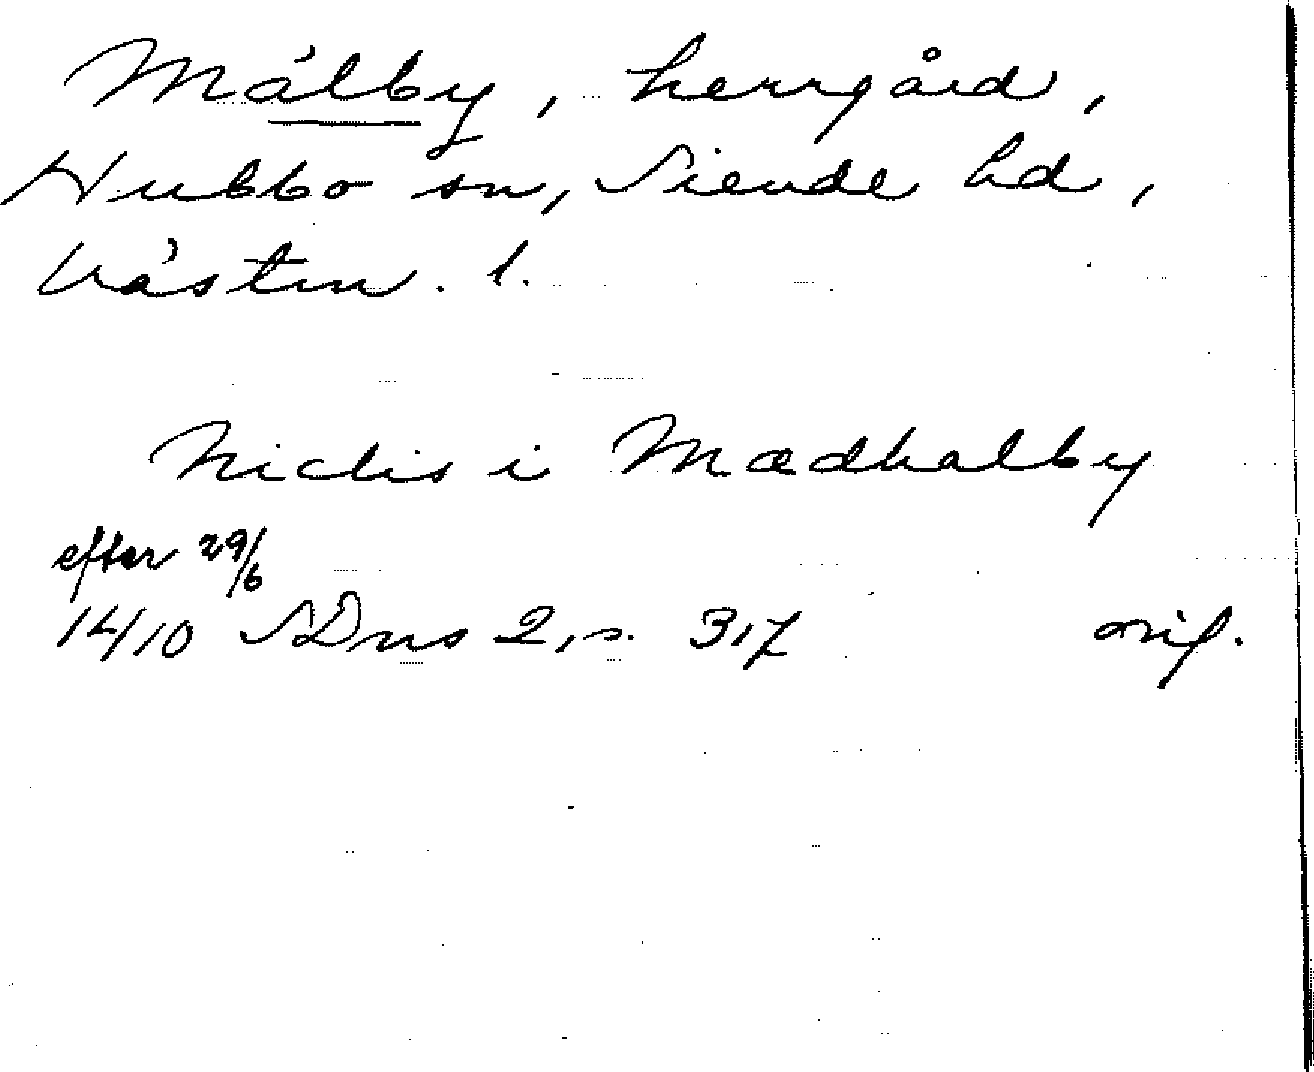 Mälby, herrgård,
Hubbo sn, Siende hd,
Västm. l.
Niclis i Mædhalby
efter 29/6
1410 SDns 2, s. 317 orig.